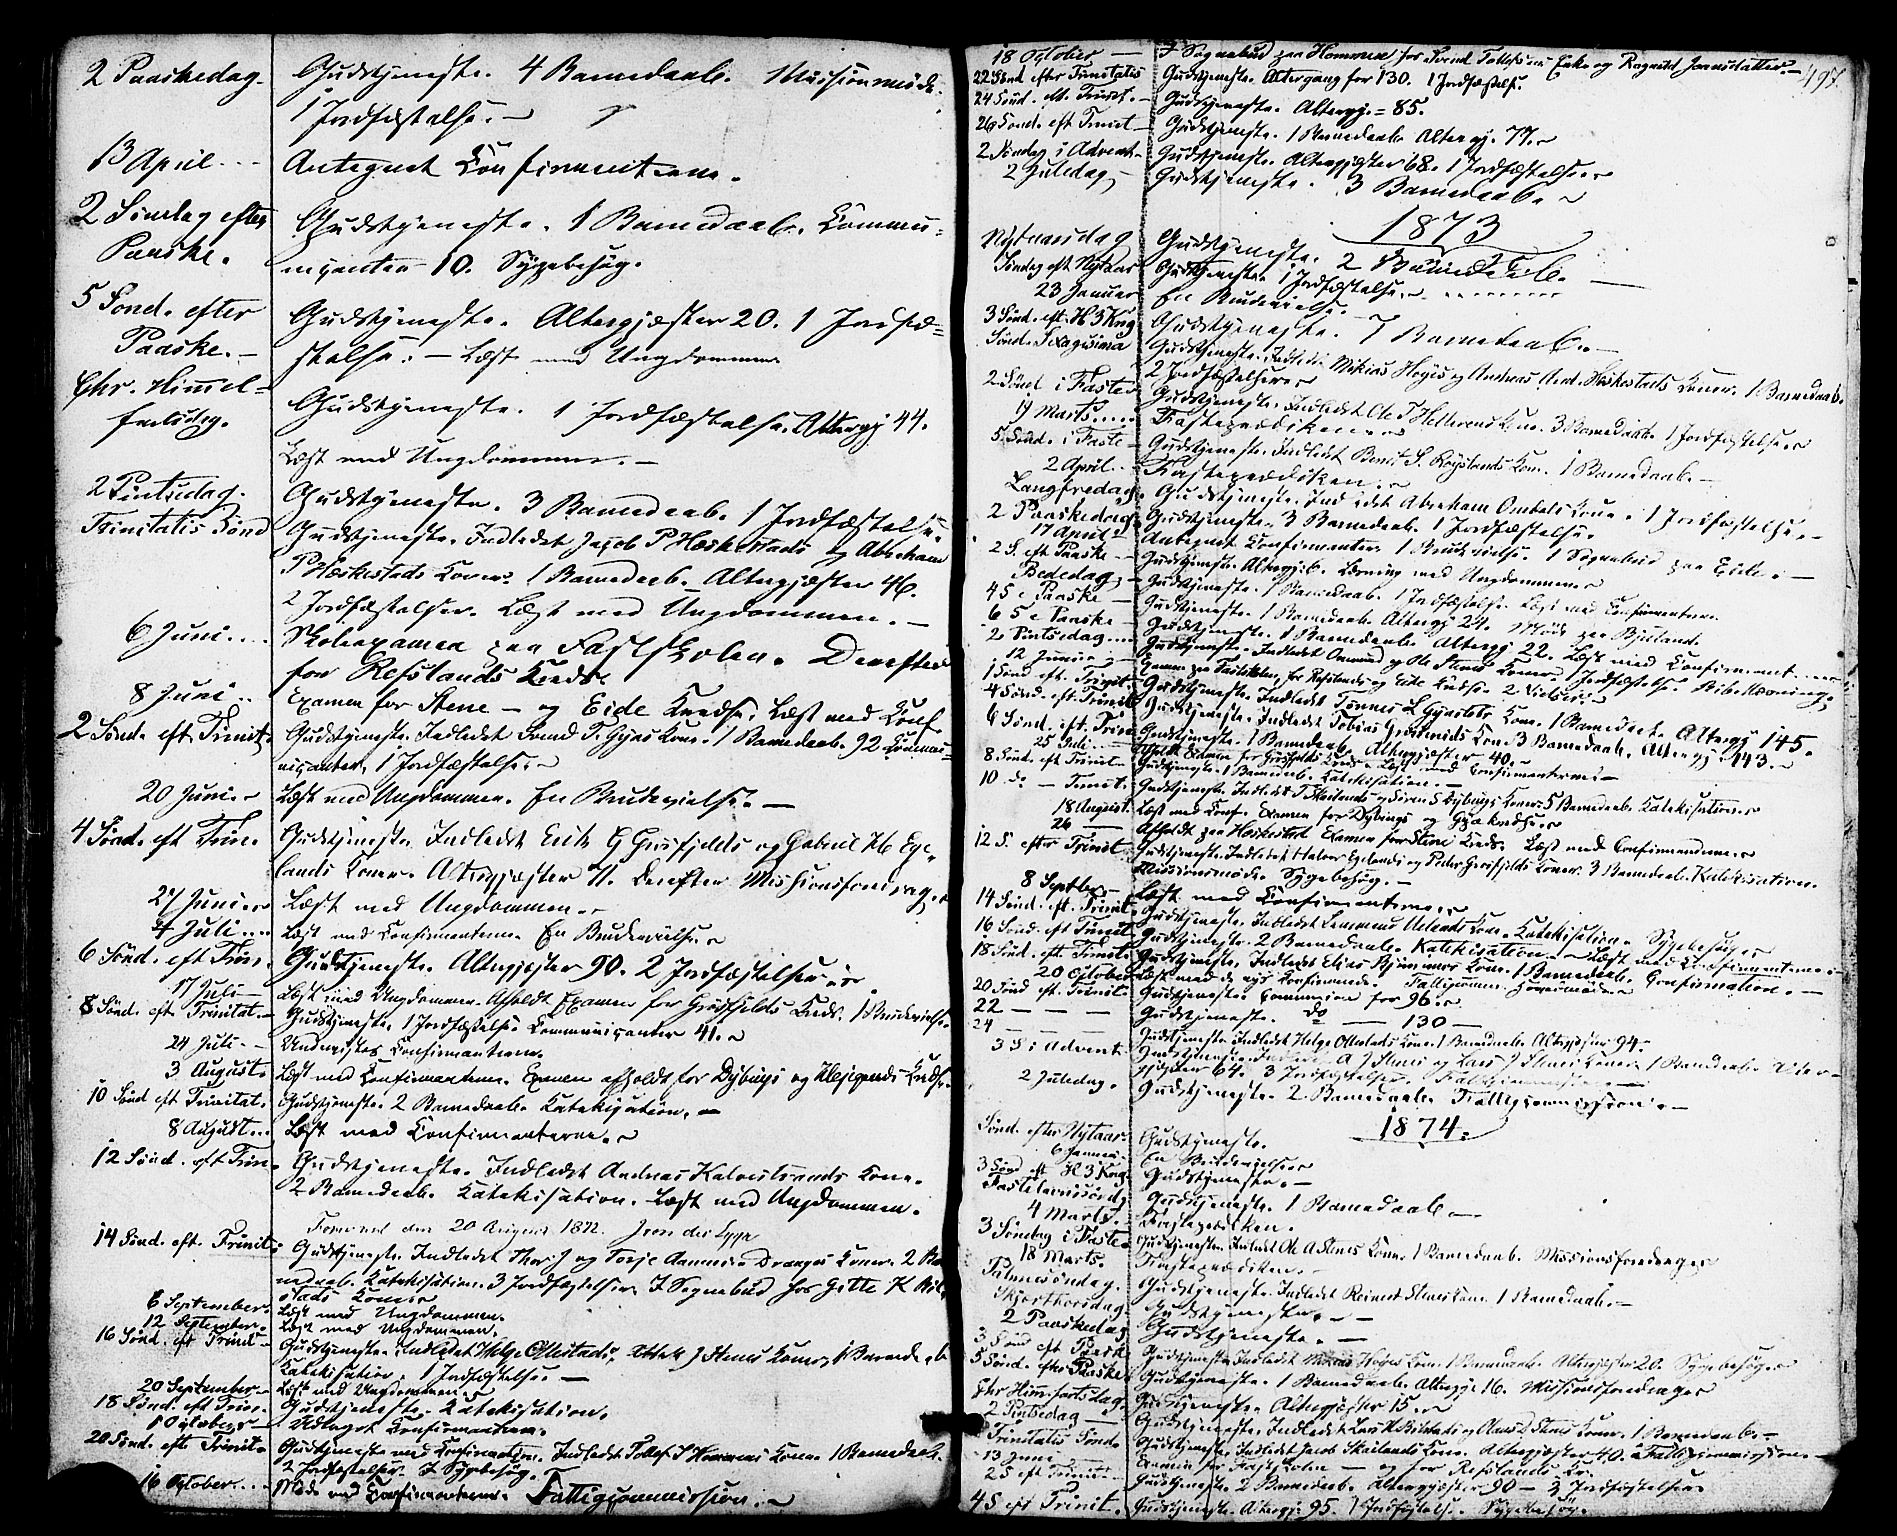 2 Paaskedag. Gudstjeneste. 4 Barnedaab. Missionsmøde.
1 Jordfæstelse.
13 April Antegnet Confirmanterne.
2 Søndag efter Gudstjeneste. 1 Barnedaab. Commu-
Paaske. nicanter 10. Sygebesøg.
5 Sønd. efter Gudstjeneste. Altergjæster 20. 1 Jordfæ-
Paaske. stelse. Læst med Ungdommen
Chr. Himmel- Gudstjeneste. 1 Jordfæstelse. Altergj 44.
fartsdag.
Læst med Ungdommen.
2 Pintsedag. Gudstjeneste. 3 Barnedaab. 1 Jordfæstelse.
Trinitatis Sønd Gudstjeneste. Indledet Jacob P Hæskestads og Abraham
P Hæskestads Koner. 1 Barnedaab. Altergjæster 46.
2 Jordfæstelser. Læst med Ungdommen.
6 Juni Skoleexamen paa Fastskolen. Derefter
for Refslands Kreds.
8 Juni Examen for Stene - og Eide Kreds. Læst med Conf.
2 Sønd. eft Trinit. Gudstjeneste. Indledet Svend T. Gyas Kone. 1 Barnedaab. 92 Commu-
nicanter, 1 Jordfæstelse.
20 Juni Læst med Ungdommen. En Brudevielse.
4 Sønd. eft Trin. Gudstjeneste. Indledet Erik G Grøsfjelds og Gabriel Ege-
lands Koner. Altergjæster 71. Derefter Missionsforedrag.
27 Juni Læst med Ungdommen.
4 Juli Læst med Confirmanterne. En Brudevielse.
6 Sønd. eft Trin. Gudstjeneste. Altergjæster 90. 2 Jordfæstelser.
17 Juli Læst med Ungdommen. Afholdt Examen for Grøsfjelds Kreds. 1 Brudevielse.
8 Sønd. eft Trinitat. Gudstjeneste. 1 Jordfæstelse. Communicanter 41.
24 Juli Underviste Confirmanterne.
3 August. Læst med Confirmanterne. Examen afholdt for Dybings og Kreds.
10 Sønd eft Trinitat. Gudstjeneste. 2 Barnedaab. Katekisation.
8 August. Læst med Confirmanterne.
12 Sønd. eft Trin. Gudstjeneste. Indledet Andreas Kalvestrands Kone.
2 Barnedaab. Katekisation. Læst med Ungdommen.
den 20 August 1872.
14 Sønd. eft. Trinit. Gudstjeneste. Indledet Thor J og Terje Aanensen Dragøs Koner. 2 Bar-
nedaab. Katekisation. 3 Jordfæstelser. I Sognebud hos Gitte K
stads Kone.
6 September. Læst med Ungdommen.
12 September. Læst med Ungdommen.
16 Sønd. eft Trinit. Gudstjeneste. Indledet Helge Ollestads, J Stenes Koner, 1 Barnedaab
Katekisation. 1 Jordfæstelse.
20 September. Læst med Ungdommen.
18 Sønd. eft Trin. Gudstjeneste. Katekisation.
1 October Udtaget Confirmanterne.
20 Sønd. eft Trinit. Gudstjeneste med Confirmation. Indledet Tollef S Hommens Kone. 1 Barnedaab.
2 Jordfæstelser. I Sygebesøg.
16 October. Møde med Confirmanterne. Fattigcommission.
497.
18 October I Sognebud paa Hommen for Svend Enke og Ragnild Jonasdatter.
22 Sønd efter Trinitatis Gudstjeneste. Altergang for 130. 1 Jordfæstelse.
24 Sønd. eft. Trinit. Gudstjeneste. Altergj. 85.
26 Sønd. eft Trinit Gudstjeneste. 1 Barnedaab. Altergj. 77.
2 Søndag i Advent. Gudstjeneste. Altergjæster 68. 1 Jordfæstelse.
2 Juledag Gudstjeneste. 3 Barnedaab.
1873
Nytaarsdag Gudstjeneste. 2 Barnedaab.
Søndag eft Nytaar Gudstjeneste. 1 Jordfæstelse.
23 Januar En Brudevielse.
3 Sønd. eft. H 3 Kng Gudstjeneste. 7 Barnedaab.
Sønd. Sexagisima Gudstjeneste. Indledet Mikias Høyes og Andreas And. Heskestads Koner. 1 Barnedaab.
2 Jordfæstelser
2 Sønd i Faste Gudstjeneste. Indledet Ole T Hellerens Kone. 3 Barnedaab. 1 Jordfæstelse.
19 Marts. Fasteprædiken.
5 Sønd. i Faste Gudstjeneste. Indledet Bernt S. Røyslands Kone. 1 Barnedaab.
2 April Fasteprædiken.
Langfredag. Gudstjeneste. Indledet Abraham Ombels Kone. 1 Jordfæstelse.
2 Paaskedag Gudstjeneste. 3 Barnedaab. 1 Jordfæstelse.
17 April Antegnet Confirmanter. 1 Brudevielse. 1 Sognebud paa Eide.
2 S. eft Paaske Gudstjeneste. Altergj. 6. Læsning med Ungdommen
Bededag Gudstjeneste. 1 Barnedaab. 1 Jordfæstelse. Læst med Confirmanterne.
4 S e Paaske Gudstjeneste. 1 Barnedaab. Altergj 27. Møde paa Bjuland.
6 S e Paaske Gudstjeneste. 1 Barnedaab. Altergj 22. Læst med Confirmanterne
2 Pintsedag Gudstjeneste. Indledet Ommund og Ole Stenes Koner. 1 Jordfæstelse. Bibellæsning.
12 Juni Examen paa Fastskolen, for Refslands og Eide Kredse. 2 Vielser.
1 Sønd eft. Trinit. Gudstjeneste. Indledet Tønnes L Kone. 1 Barnedaab. Altergj 145.
4 Sønd. eft. Trinit Gudstjeneste. Indledet Tobias Kone 3 Barnedaab. Altergj 143.
6 Sønd. eft. Trin. Gudstjeneste. 1 Barnedaab. Altergjæster 40.
25 Juli Afholdt Examen for Grøsfjelds Kreds. Læst med Confirmanterne
8 Sønd. eft Trinit. Gudstjeneste. 1 Barnedaab. Katekisation.
10 do Trinit. Gudstjeneste. Indledet T Skailands og Søren S Dybings Koner. 5 Barnedaab. Katekisation.
18 August. Læst med Conf. Examen for Dybings og Kreds.
26 Afholdt paa Heskestad Examen for Stene Kreds. Læst med Confirmanderne.
12 S. efter Trinit Gudstjeneste. Indledet Halvor Egelands og Peder Grøsfjelds Koner. 3 Barnedaab. Katekisation.
Missionsmøde. Sygebesøg.
8 Septbr. Læst med Confirmanterne.
14 Sønd. eft. Trinit. Gudstjeneste. Indledet Uelands Kone. Katekisation. Sygebesøg
16 Sønd. eft Trinit Gudstjeneste. 2 Barnedaab. Katekisation. Læst med Confirmanterne
18 Sønd. eft. Trinit. Gudstjeneste. Indledet Elias Kone. 1 Barnedaab. Confirmation.
20 October Læst med de nys Confirmerede. Fattigcomm.
20 Sønd eft. Trinit. Gudstjeneste. Communion for 96.
22 — — — Gudstjeneste. do — 130 —
24 — — — Gudstjeneste. Indledet Helge Ollestads Kone. 1 Barnedaab. Altergjæster 94.
3 S. i Advent Gudstjeneste. Indledet A J Stenes og Lars J Stenes Koner. 1 Barnedaab. Alter-
gjæster 64. 3 Jordfæstelser. Fattigcommission
2 Juledag. Gudstjeneste. 2. Barnedaab. Fattigcommission.
1874.
Sønd. efter Nytaar Gudstjeneste.
6 Januar. En Brudevielse.
3 Sønd eft H 3 Kng. Gudstjeneste.
Fastelavnssønd. Gudstjeneste. 1 Barnedaab
4 Marts. Fasteprædiken.
3 Søndag i Faste Gudstjeneste. Indledet Ole A Stenes Kone. 1 Barnedaab. Missionsforedrag
18 Marts. Fasteprædiken.
Palmesøndag. Gudstjeneste. Indledet Reinert Stenes Kone. 1 Barnedaab.
Skjærthorsdag Gudstjeneste.
2 Paaskedag Gudstjeneste.
3 Sønd eft Paaske Gudstjeneste. Indledet Mikias Høyes Kone. 1 Barnedaab. Altergjæster 20. Sygebesøg
5 Sønd. efter Paaske Gudstjeneste. 1 Barnedaab. Altergje 16. Missionsforedrag
Chr Himmelfartsdag Gudstjeneste. Altergjæster 15.
2 Pintsedag Gudstjeneste. Indledet Lars og Claus D Stenes Koner. 1 Barnedaab.
Trinitatis Sønd. Gudstjeneste. Indledet Jacob Skailands Kone. Altergjæster 40. Fattigcommission
13 Juni Examen for Fastskolen — og for Refslands Kr.
2 S eft Trinit Gudstjeneste. 2 Barnedaab. Altergjæster 90 — 3 Jordfæstelser.
4 S eft Trinit. Gudstjeneste. Altergj: 95. 1 Jordfæstelse. Sygebesøg.